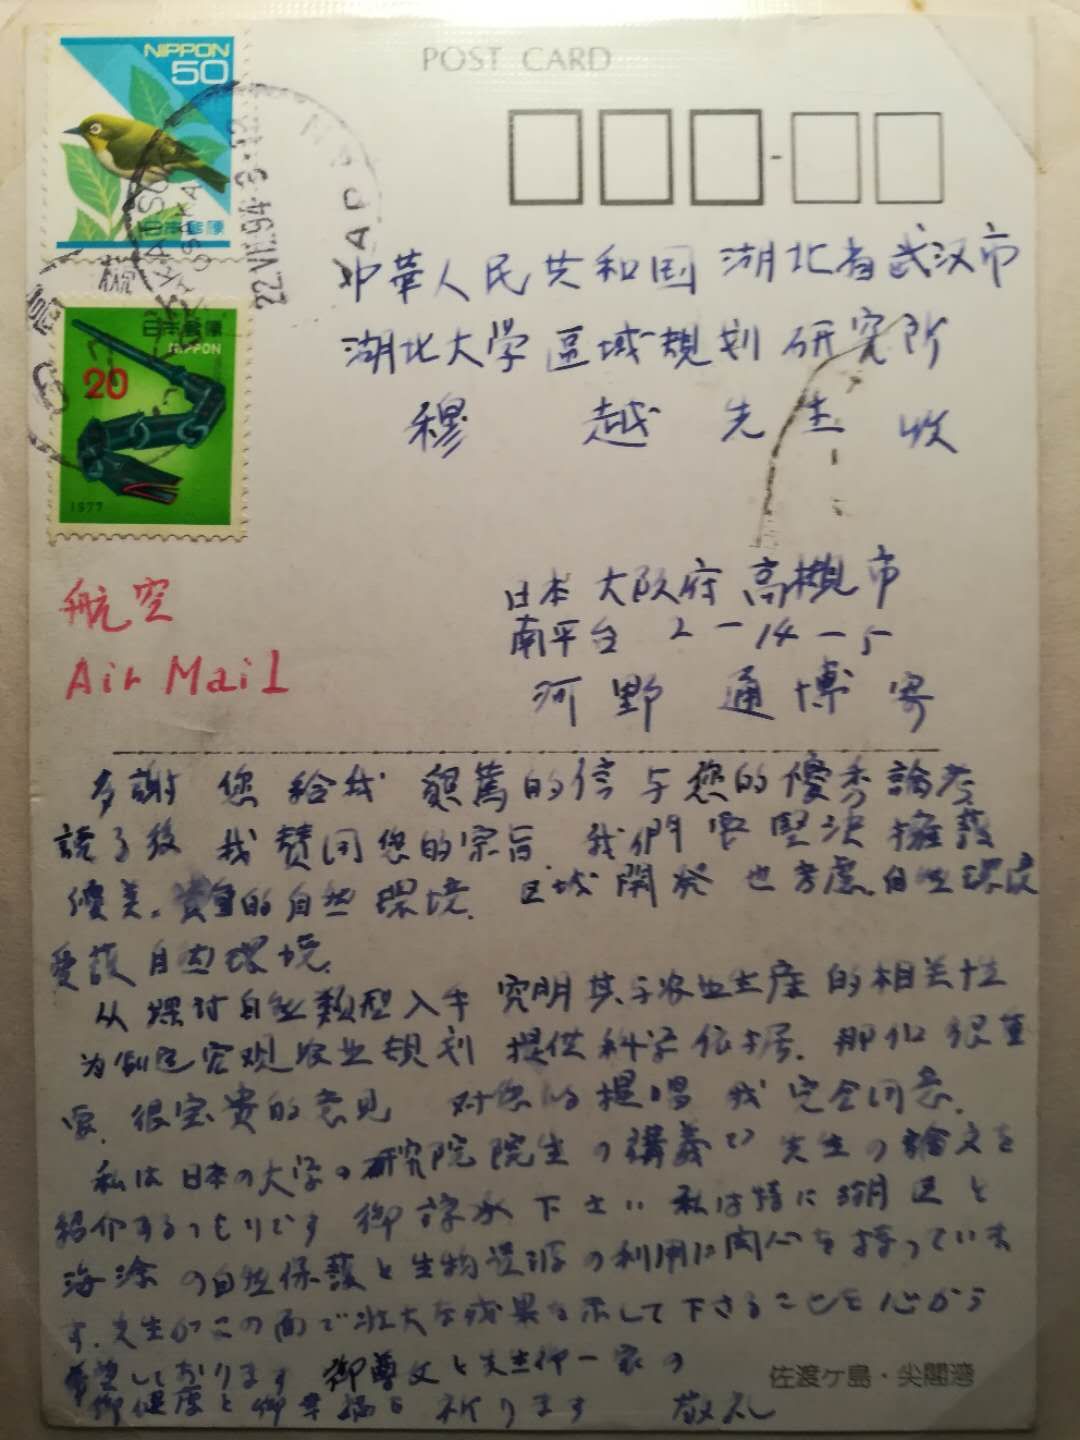 POST CARD
NIPPON
50
日本郵便
22.VII.94
JAPAN
日本郵便
NIPPON
20
1977
中華人民共和国 湖北省武汉市
湖北大学 區域規划研究所
穆 越 先生 收
航空
Air Mail
日本 大阪府 高槻市
南平台 2-14-5
河野 通博 寄
多謝 您 給我 懇篤的信 与您的優秀論考
読了後 我 賛同您的宗旨. 我們要堅決擁護
優美. 貴重的自然環境. 区域開発 也考慮
愛護自然環境.
从探讨自然類型入手 究明其与农业生産的相关性
为制定客观农业规划 提供科学依据. 那个很重
要. 很宝貴的意見 对您的提唱 我完全同意.
私は日本の大学の研究院院生の講義で 先生の論文を
紹介するつもりです 御諒承下さい 私は特に湖区と
海涂の自然保護と生物资源の利用に関心を持っていま
す. 先生がこの面で壮大な成果を示して下さることを心から
希望しております 御尊父と先生御一家の
御健康と御幸福を祈ります 敬礼
佐渡ケ島・尖閣湾